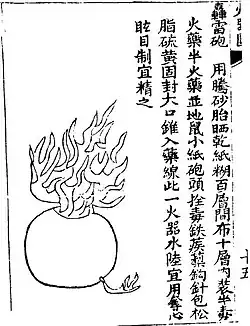 轟雷砲　用騰砂胎晒乾紙糊百層間布十層內裝半毒
火藥半火藥並地鼠小紙砲頭拴毒鉄蒺藜鈎針包松
脂硫黃固封大口錐入藥線此一火器水陸宜用奪心
眩目制宜精之